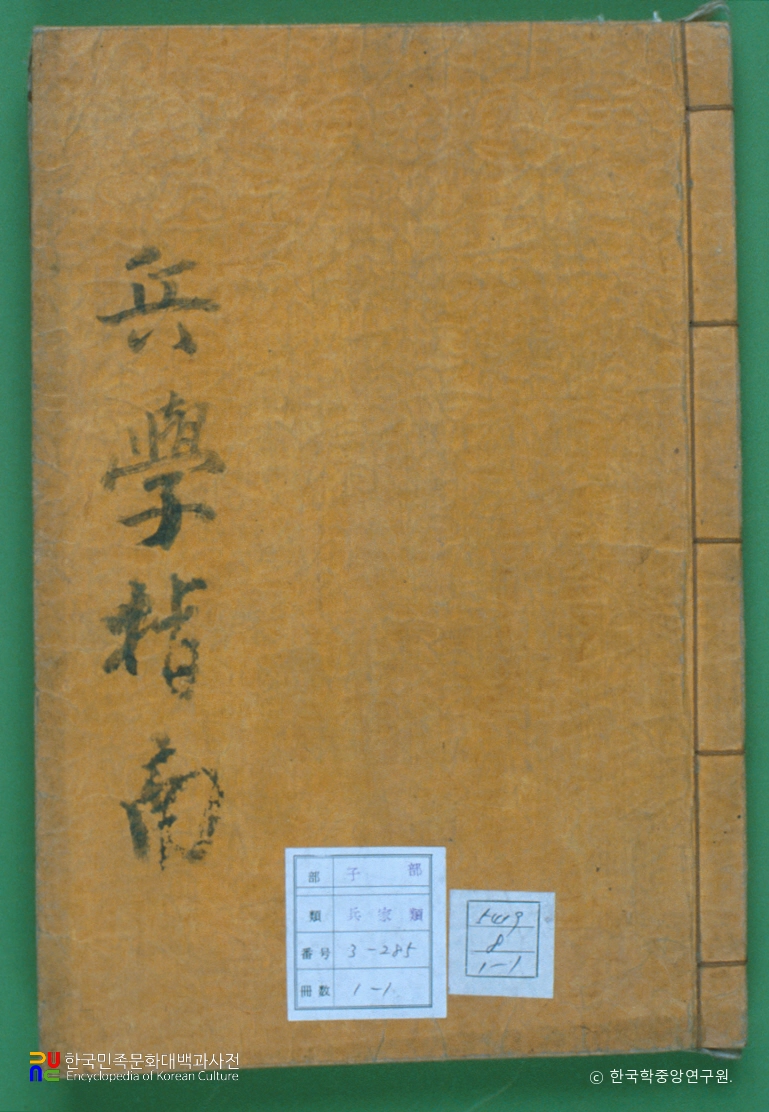 兵學指南
部 子部
類 兵家類
番号 3-285
冊数 1-1
8
1-1
한국민족문화대백과사전
Encyclopedia of Korean Culture
© 한국학중앙연구원.